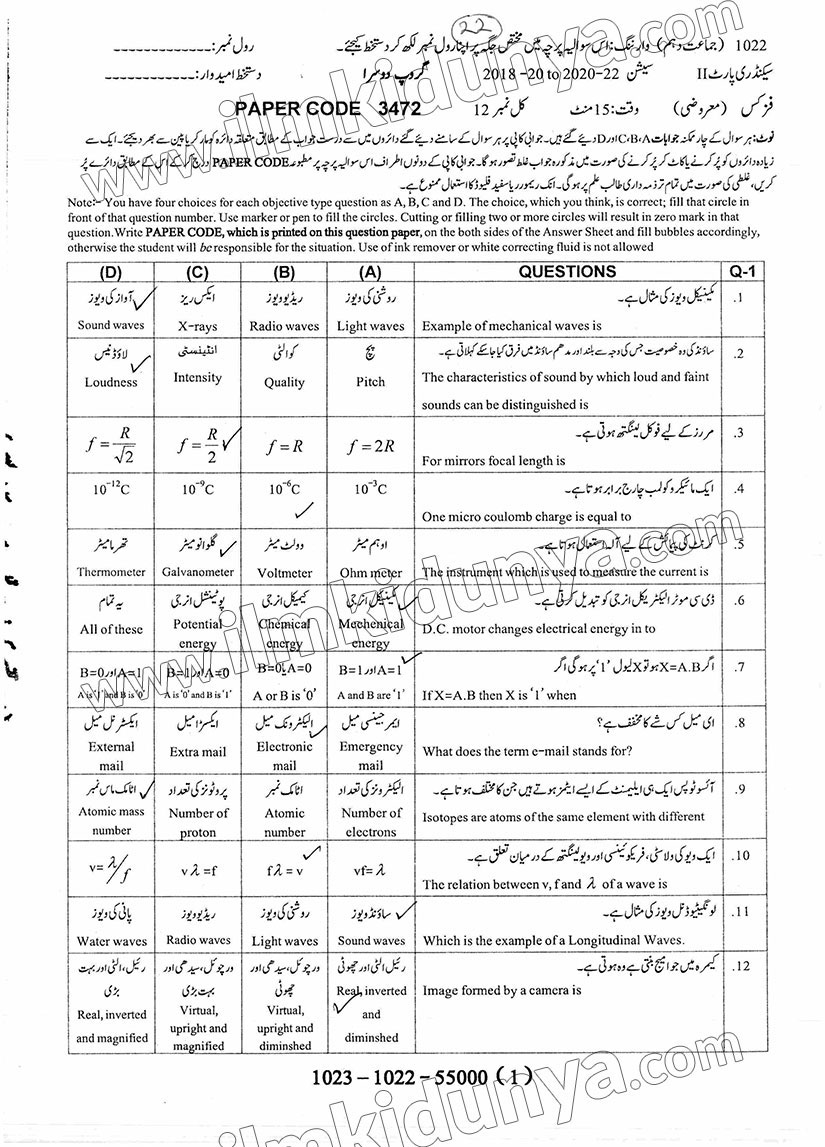 22
1022 (جماعت دہم) وارننگ: اس سوالیہ پرچہ میں مختص جگہ پر اپنا رول نمبر لکھ کر دستخط کیجئے۔ رول نمبر: -------------
سیکنڈری پارٹ II سیشن 2018 -20 to 2020-22 گروپ دوسرا دستخط امیدوار: -------------
فزکس (معروضی) وقت: 15 منٹ کل نمبر 12 PAPER CODE 3472
نوٹ:۔ ہر سوال کے چار ممکنہ جوابات A،B،C اور D دیئے گئے ہیں۔ جوابی کاپی پر ہر سوال کے سامنے دیئے گئے دائروں میں سے درست جواب کے مطابق متعلقہ دائرہ کو مارکر یا پین سے بھر دیجئے۔ ایک سے
زیادہ دائروں کو پُر کرنے یا کاٹ کر پُر کرنے کی صورت میں مذکورہ جواب غلط تصور ہو گا۔ جوابی کاپی کے دونوں اطراف اس سوالیہ پرچہ پر مطبوعہ PAPER CODE درج کر کے اس کے مطابق دائرے پُر
کریں، غلطی کی صورت میں تمام تر ذمہ داری طالب علم پر ہو گی۔ انک ریموور یا سفید فلیوڈ کا استعمال ممنوع ہے۔
Note:- You have four choices for each objective type question as A, B, C and D. The choice, which you think, is correct; fill that circle in
front of that question number. Use marker or pen to fill the circles. Cutting or filling two or more circles will result in zero mark in that
question.Write PAPER CODE, which is printed on this question paper, on the both sides of the Answer Sheet and fill bubbles accordingly,
otherwise the student will be responsible for the situation. Use of ink remover or white correcting fluid is not allowed
(D) (C) (B) (A) QUESTIONS Q-1
آواز کی ویوز ایکس ریز ریڈیو ویوز روشنی کی ویوز مکینیکل ویوز کی مثال ہے۔ .1
Sound waves X-rays Radio waves Light waves Example of mechanical waves is
لاؤڈنیس انٹینسٹی کوالٹی پچ ساؤنڈ کی وہ خصوصیت جس کی وجہ سے بلند اور مدھم ساؤنڈ میں فرق کیا جا سکے کہلاتی ہے۔ .2
Loudness Intensity Quality Pitch The characteristics of sound by which loud and faint
sounds can be distinguished is
f = R/√2 f = R/2 f = R f = 2R مررز کے لیے فوکل لینگتھ ہوتی ہے۔ .3
For mirrors focal length is
10⁻¹²C 10⁻⁹C 10⁻⁶C 10⁻³C ایک مائیکرو کولمب چارج برابر ہوتا ہے۔ .4
One micro coulomb charge is equal to
تھرمامیٹر گلوانومیٹر وولٹ میٹر اوہم میٹر کرنٹ کی پیمائش کے لیے آلہ استعمال ہوتا ہے۔ .5
Thermometer Galvanometer Voltmeter Ohm meter The instrument which is used to measure the current is
یہ تمام پوٹینشل انرجی کیمیکل انرجی مکینیکل انرجی ڈی سی موٹر الیکٹریکل انرجی کو تبدیل کرتی ہے۔ .6
All of these Potential energy Chemical energy Mechenical energy D.C. motor changes electrical energy in to
A=1 اور B=0 A=0 اور B=1 A=0 یا B=0 A=1 اور B=1 اگر X=A.B ہو تو X لیول '1' پر ہو گی اگر .7
A is '1' and B is '0' A is '0' and B is '1' A or B is '0' A and B are '1' If X=A.B then X is '1' when
ایکسٹرنل میل ایکسٹرا میل الیکٹرونک میل ایمرجینسی میل ای میل کس شے کا مخفف ہے؟ .8
External mail Extra mail Electronic mail Emergency mail What does the term e-mail stands for?
اٹامک ماس نمبر پروٹونز کی تعداد اٹامک نمبر الیکٹرونز کی تعداد آئسوٹوپس ایک ہی ایلیمنٹ کے ایسے ایٹمز ہوتے ہیں جن کا مختلف ہوتا ہے۔ .9
Atomic mass number Number of proton Atomic number Number of electrons Isotopes are atoms of the same element with different
v= λ/f vλ=f fλ=v vf=λ ایک ویو کی ولاسٹی، فریکوئینسی اور ویولینگتھ کے درمیان تعلق ہے۔ .10
The relation between v, f and λ of a wave is
پانی کی ویوز ریڈیو ویوز روشنی کی ویوز ساؤنڈ ویوز لونگیٹیوڈنل ویوز کی مثال ہے۔ .11
Water waves Radio waves Light waves Sound waves Which is the example of a Longitudinal Waves.
رئیل، الٹی اور بہت بڑی ورچوئل، سیدھی اور بہت بڑی ورچوئل، سیدھی اور چھوٹی رئیل الٹی اور چھوٹی کیمرہ میں جو امیج بنتی ہے وہ ہوتی ہے۔ .12
Real, inverted and magnified Virtual, upright and magnified Virtual, upright and diminshed Real, inverted and diminshed Image formed by a camera is
1023 – 1022 – 55000 (1)
www.ilmkidunya.com
www.ilmkidunya.com
www.ilmkidunya.com